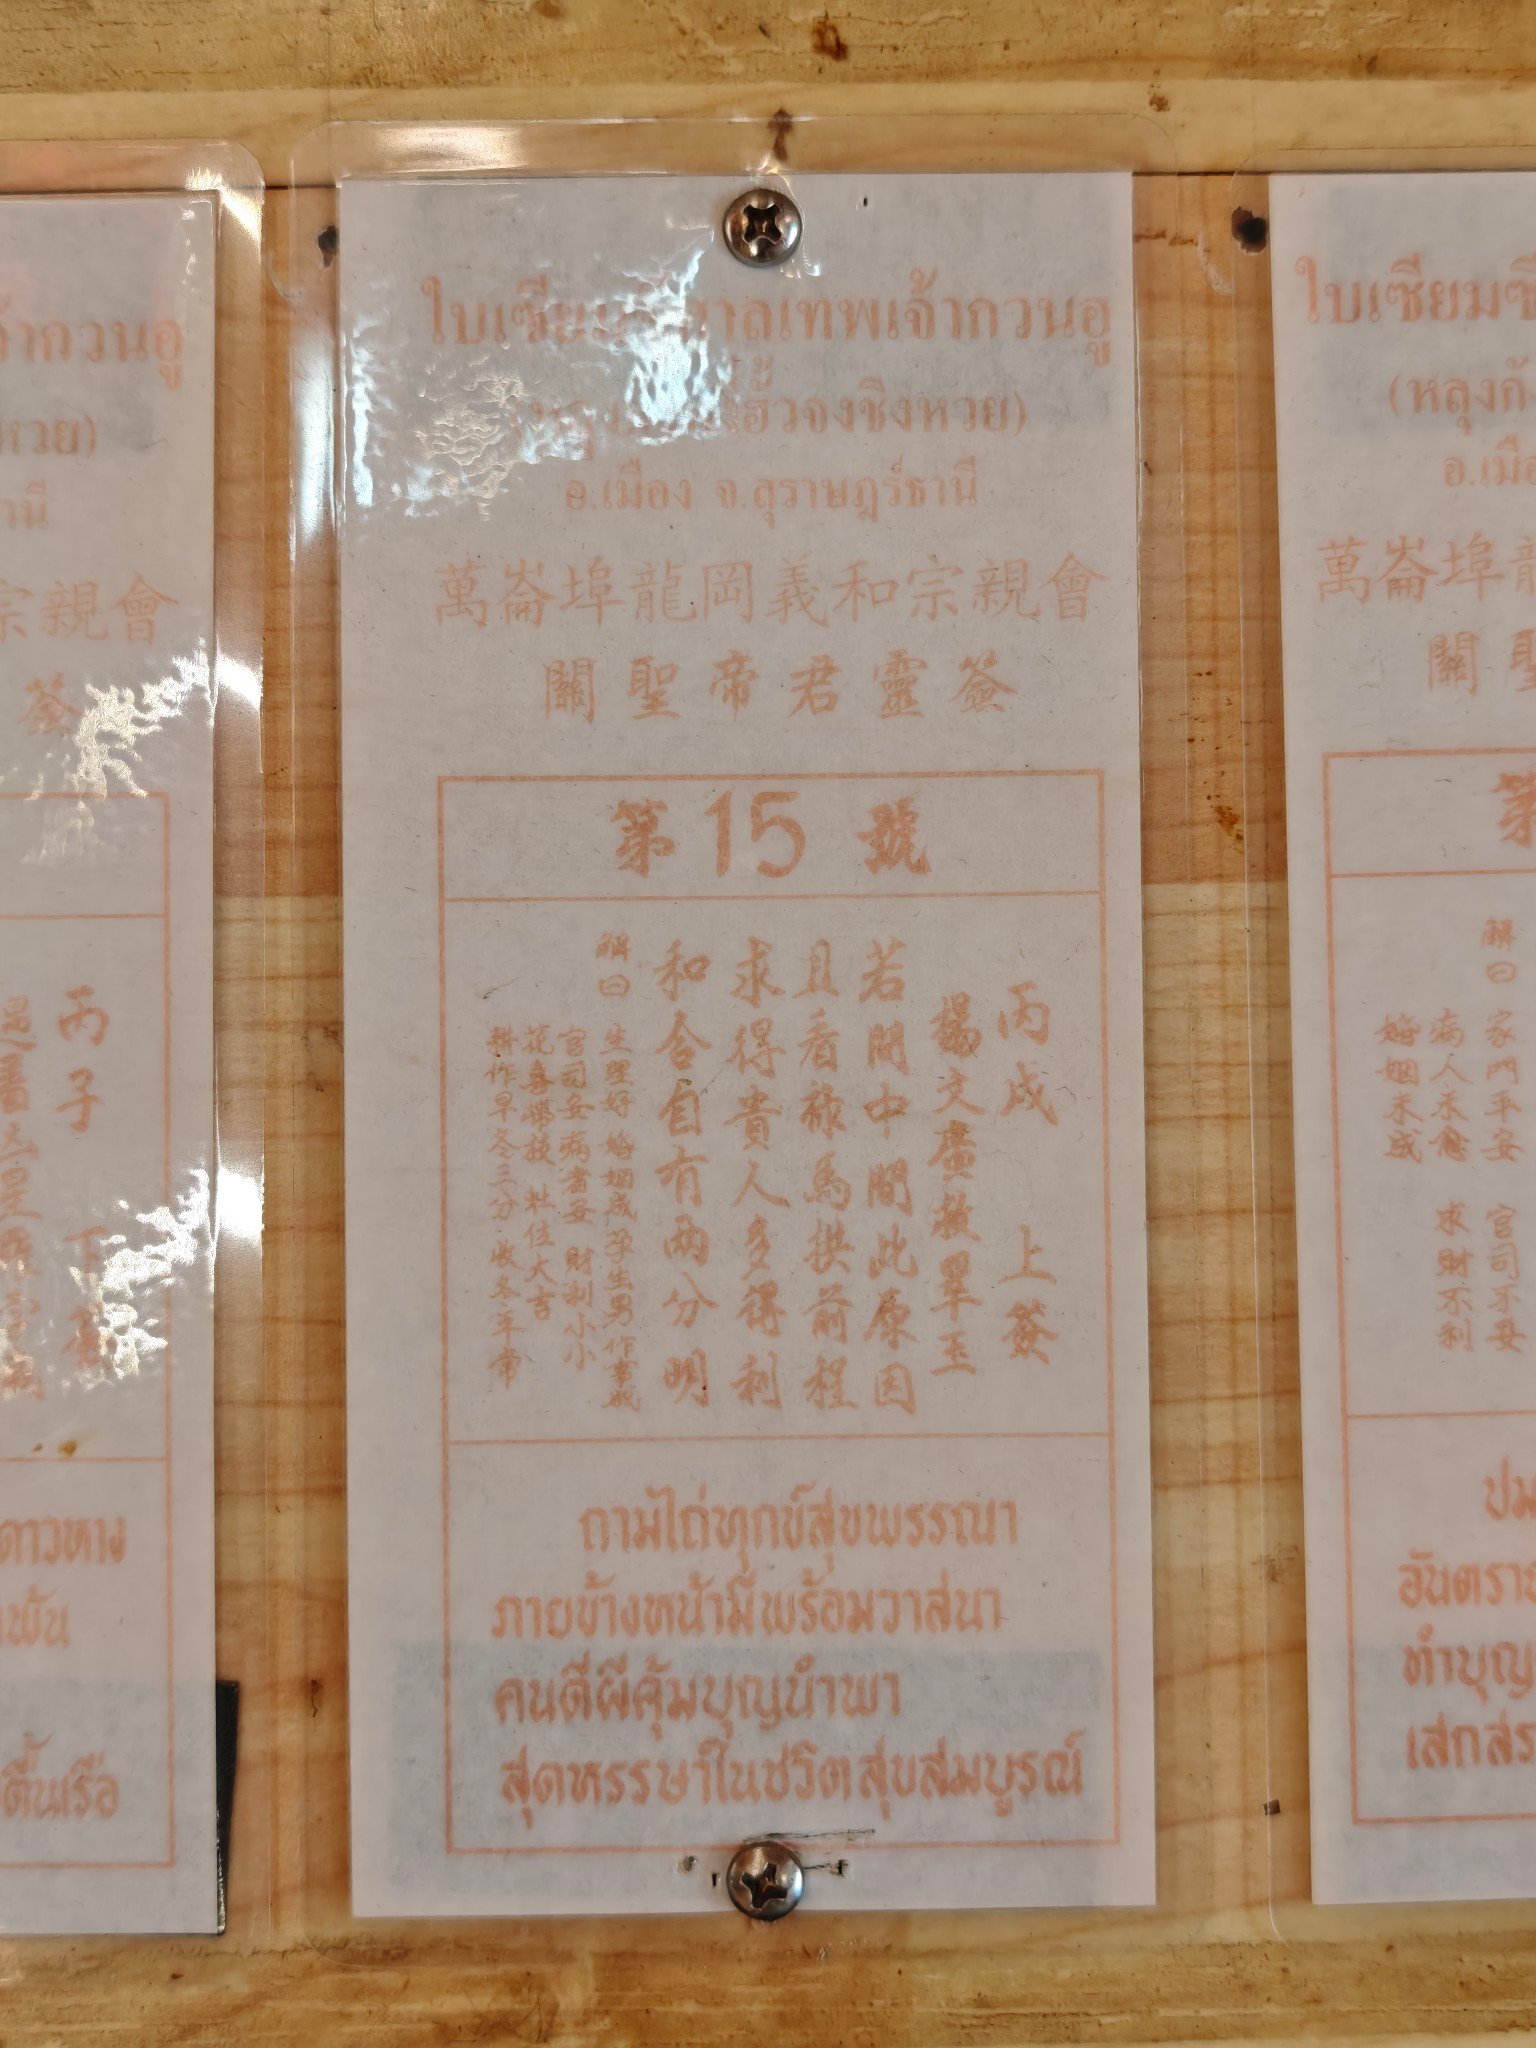 ้ากวนอู
หวย)
านี
宗親會
簽
丙子
ดาวหาง
พัน
ตื้นเรือ
ใบเซียมซีศาลเทพเจ้ากวนอู
ฮั้วจงชิงหวย)
อ.เมือง จ.สุราษฎร์ธานี
萬崙埠龍岡義和宗親會
關聖帝君靈簽
第15號
丙戌 上簽
楊文廣救
若問中間此原因
且看祿馬拱前程
求得貴人多得利
和合自有兩分明
解曰 生理好 婚姻成 孕生男 作事成
官司妥 病者妥 財利小小
大吉
耕作早冬三分 收冬平常
ถามไถ่ทุกข์สุขพรรณา
ภายข้างหน้ามีพร้อมวาสนา
คนดีผีคุ้มบุญนำพา
สุดหรรษาในชีวิตสุขสมบูรณ์
ใบเซียมซี
(หลุงกั
อ.เมือ
萬崙埠龍
關聖
第
解曰 家門平安 官司不妥
病人未愈 求財不利
婚姻未成
ปม
อันตรา
ทำบุญ
เสกสร